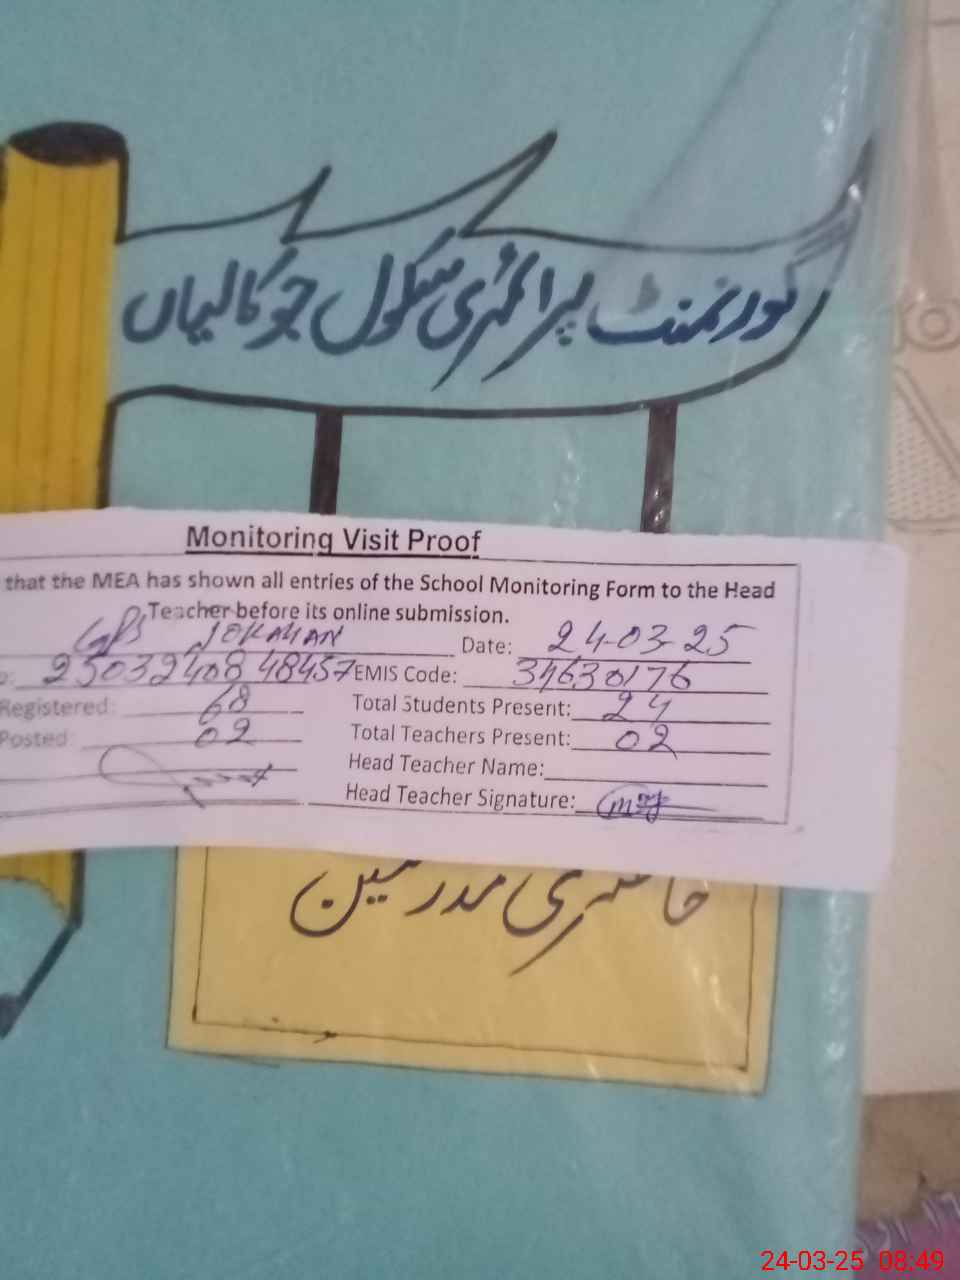 گورنمنٹ پرائمری سکول جوکالیاں
Monitoring Visit Proof
that the MEA has shown all entries of the School Monitoring Form to the Head
Teacher before its online submission.
GPS JOKALIAN Date: 24-03-25
25032408 48457 EMIS Code: 34630176
Registered: 68 Total Students Present: 24
Posted: 02 Total Teachers Present: 02
Head Teacher Name:
Head Teacher Signature:
حاضری مدرسین
24-03-25 08:49